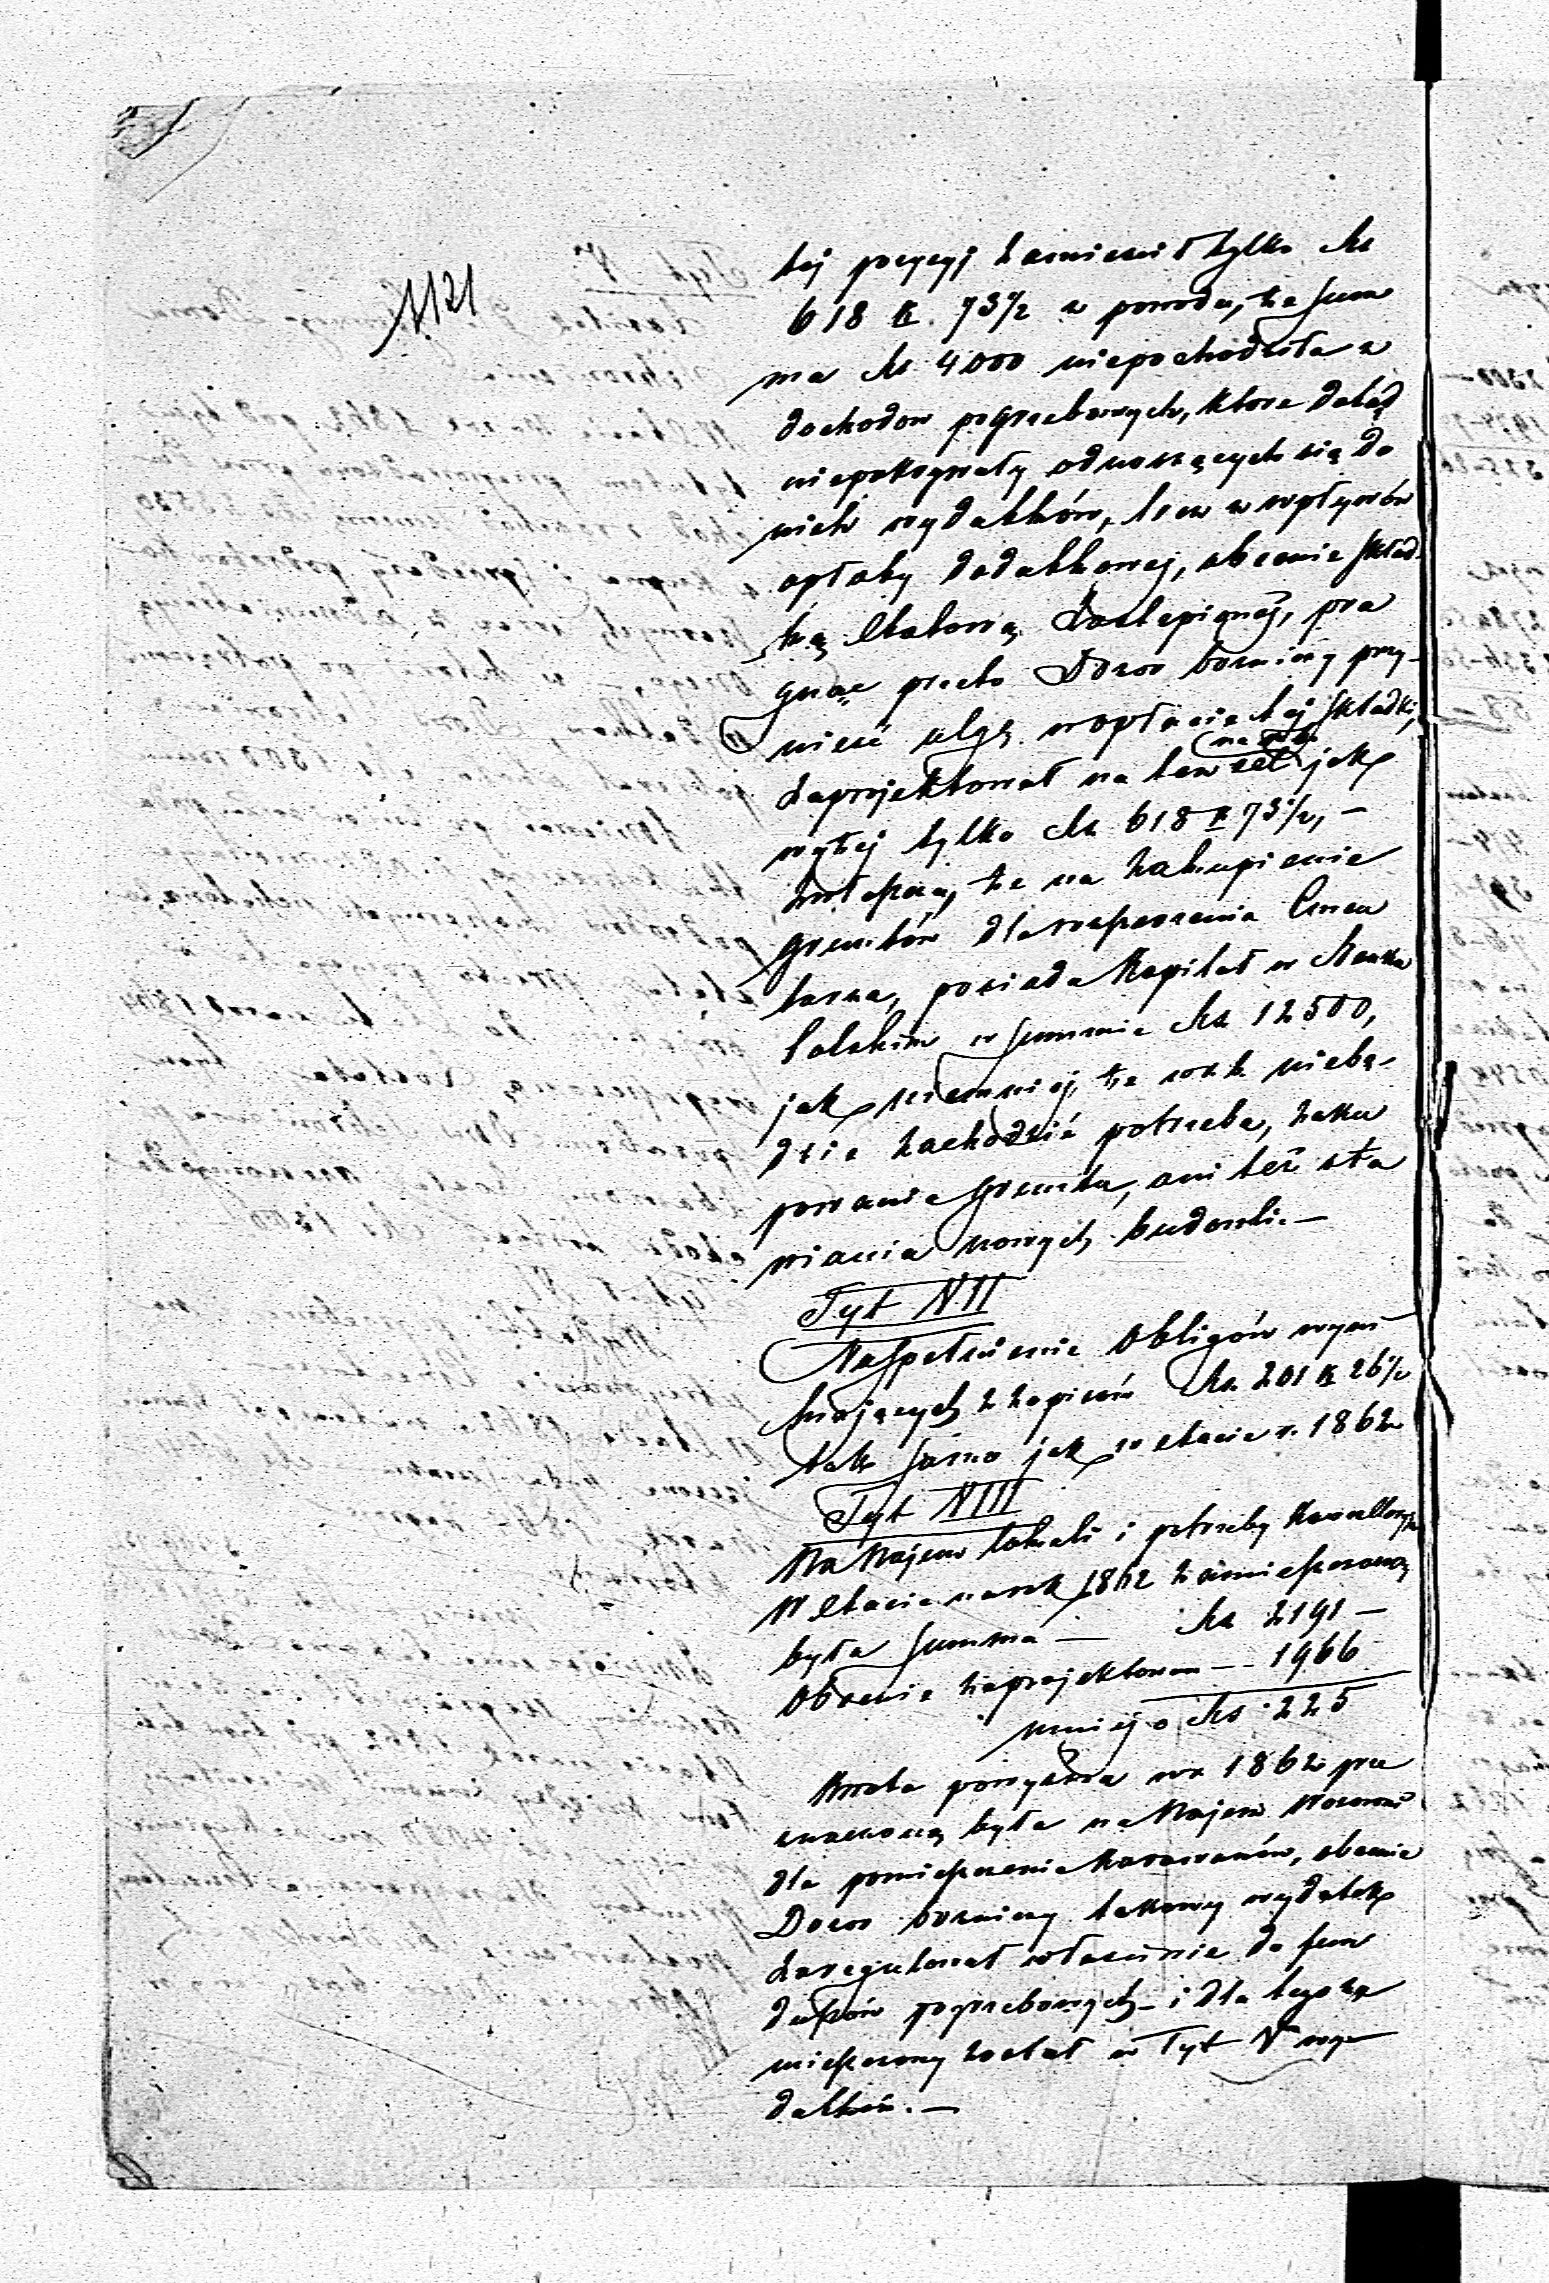 1121
tej pozycyj zamieścił tylko Rs
618 k. 73½ z powodu, że Sum
ma Rs 4000 niepochodziła z
dochodow pogrzebowych, które dotąd
niepokrywały odnoszących się do
nich wydatków, lecz z wpływów
opłaty dodatkowej, obecnie Skład-
ką Etatową zastąpionej, pra
gnąc przeto Dozor bożniczy przy-
nieść ulgę w opłacie tej Składki,
zaprojektował na ten cel jak
wyżej tylko Rs 618 k 73½, –
zwłaszcza, że na zakupienie
gruntów dla rozszerzenia Cmen
tarza, posiada Kapitał w Banku
Polskim w Summie Rs 12500,
jak niemniej, że w r. b. niebę-
dzie zachodzić potrzeba, zaku
powania gruntu, ani też sta
wiania nowych budowli. –
Tyt VII
Na Spełnienie Obligów wyni
kających z zapisów Rs 201 k 26½
tak samo jak w etacie r. 1862
Tyt VIII
Na Najem lokali i potrzeby Kancellaryj
W Etacie na rok 1862 zamieszczoną
była Summa – Rs 2191 –
Obecnie zaprojektowan – – 1966
mniej o Rs 225
Kwota powyższa w r. 1862 prze
znaczoną była na Najem Wozowni
dla pomieszczenia Karawanów, obecnie
Dozor bożniczy takowy wydatek
zaregulował właściwie do fun
duszów pogrzebowych i dla tego za
mieszczony został w Tyt V wy
datków. –